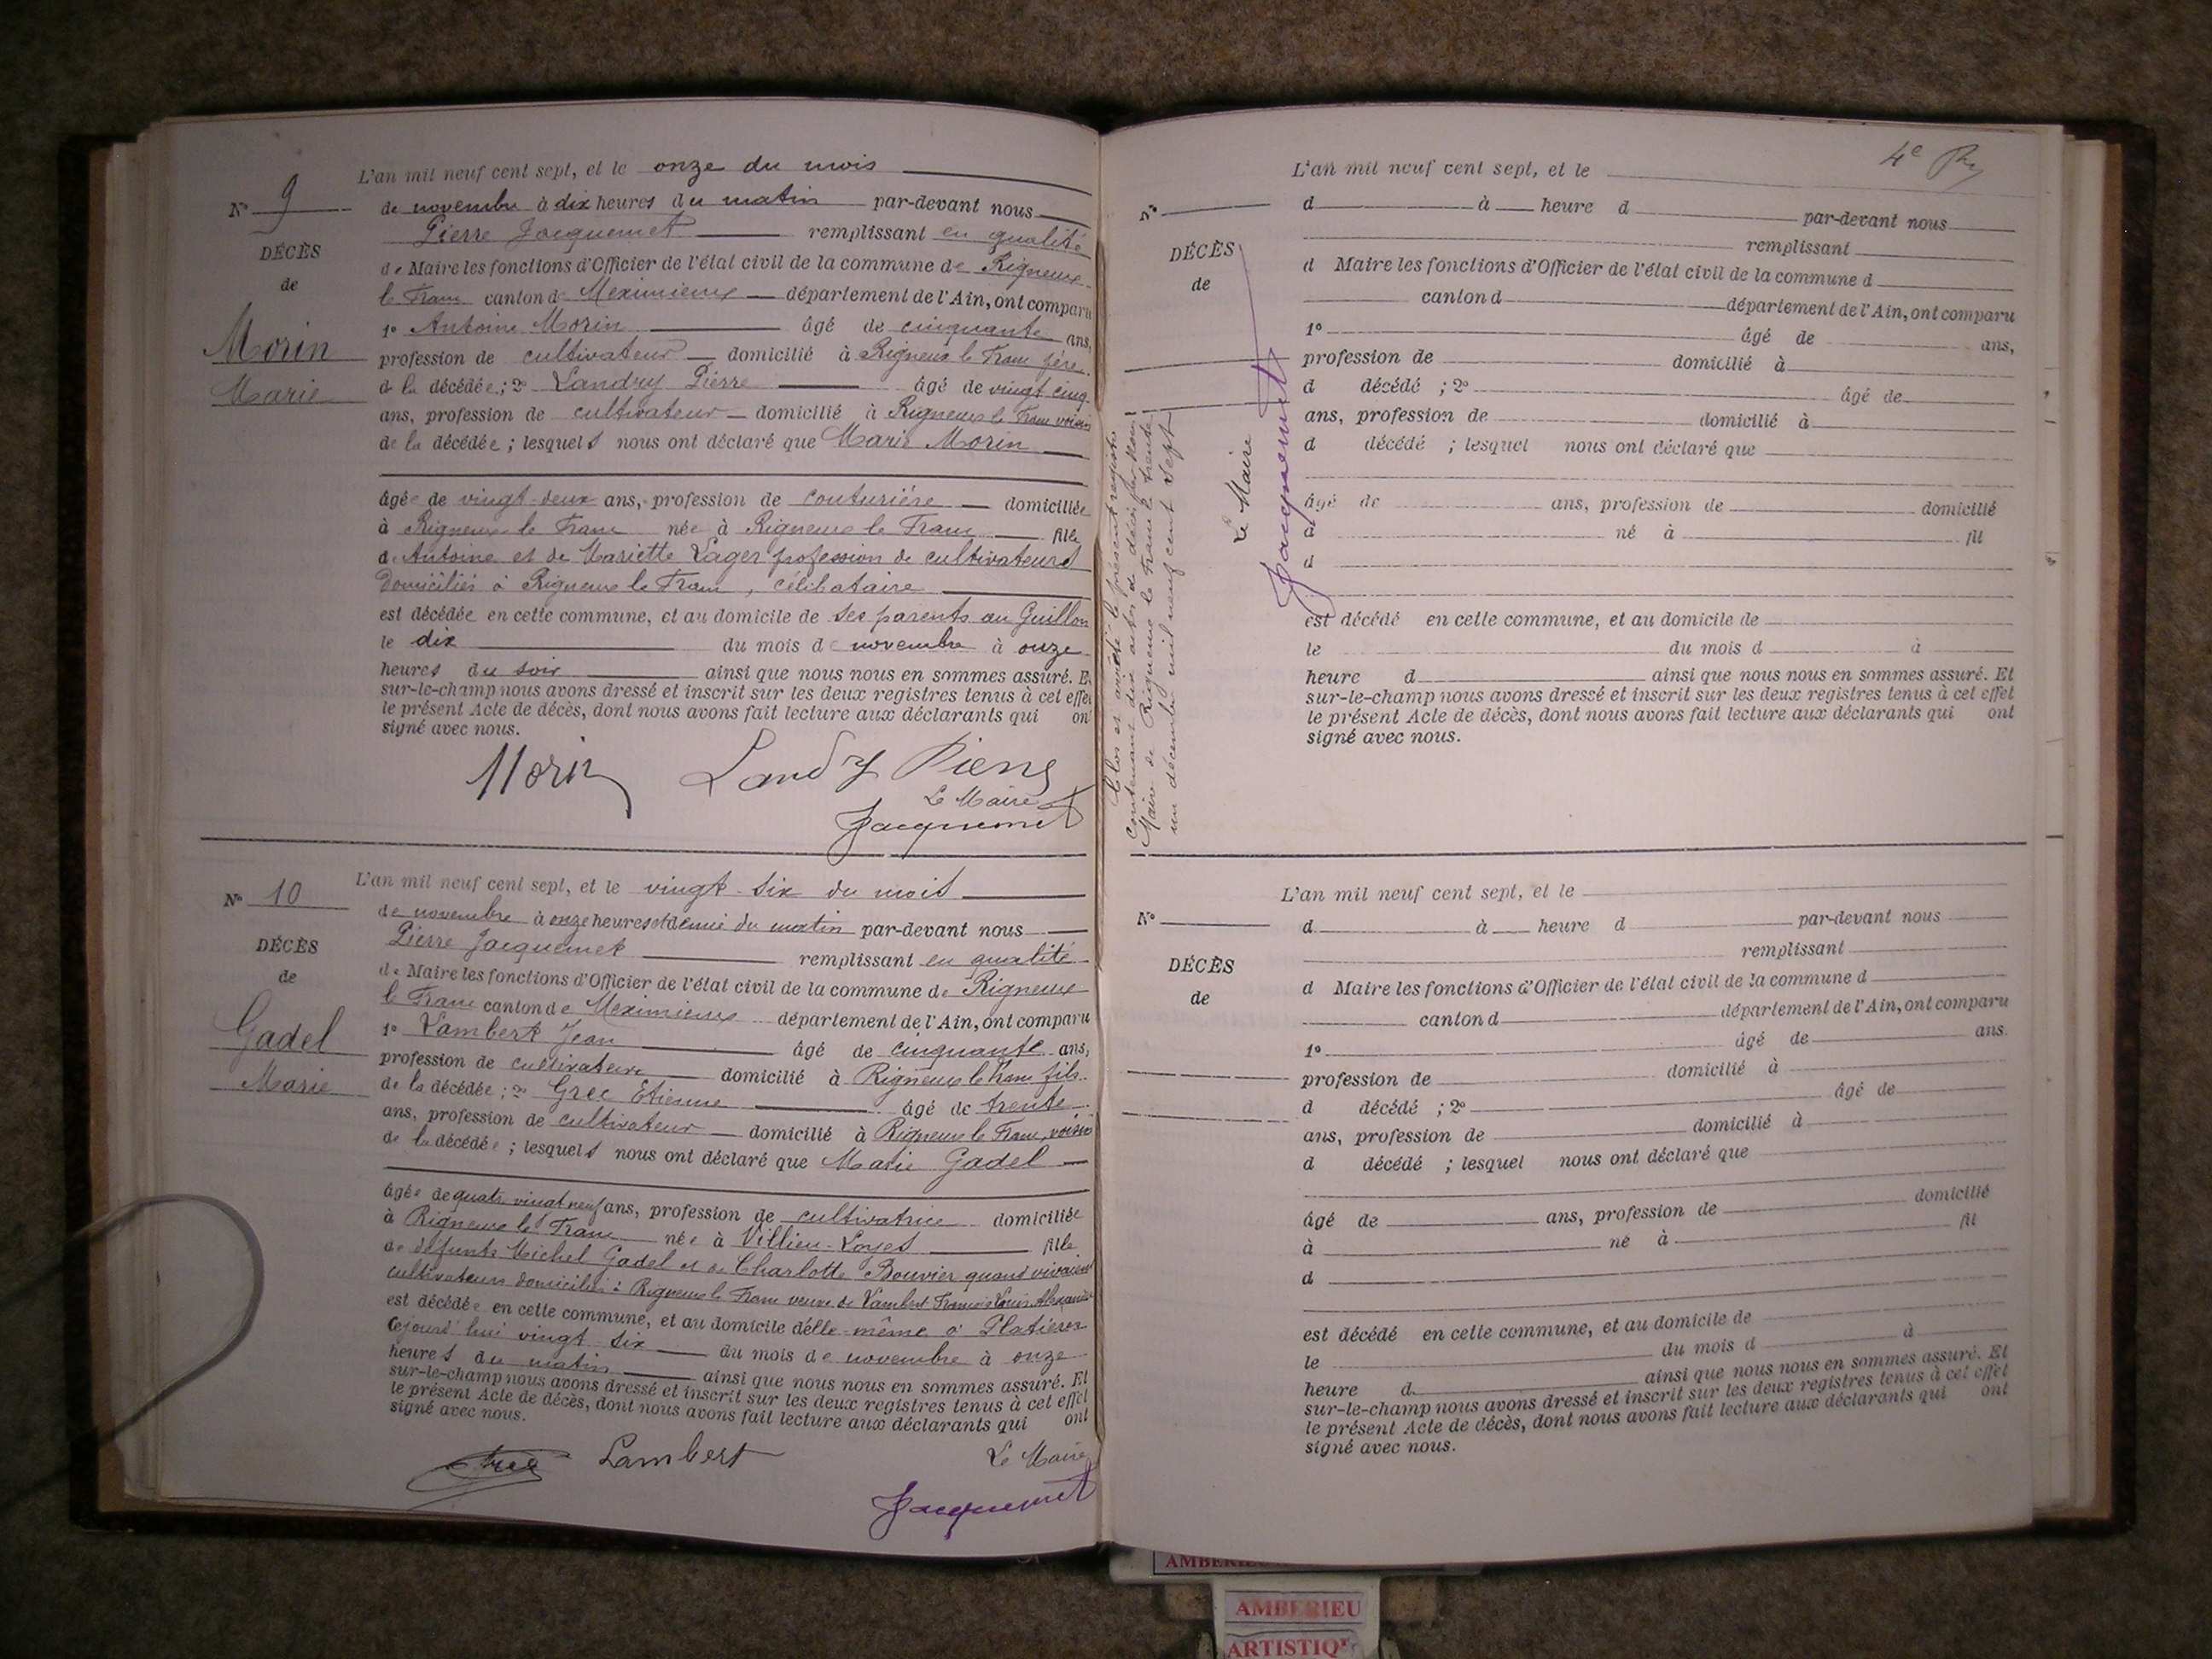 L'an mil neuf cent sept, et le onze du mois
N° 9
de novembre à dix heures du matin par-devant nous
Pierre Jacquemet remplissant en qualité
DÉCÈS
de Maire les fonctions d'Officier de l'état civil de la commune de Rigneux
de
le Franc canton de Meximieux département de l'Ain, ont comparu
1° Antoine Morin âgé de cinquante ans,
Morin
profession de cultivateur domicilié à Rigneux le Franc père
Marie
de la décédée; 2° Landry Pierre âgé de vingt cinq
ans, profession de cultivateur domicilié à Rigneux le Franc voisin
de la décédée; lesquels nous ont déclaré que Marie Morin
âgée de vingt-deux ans, profession de couturière domiciliée
à Rigneux le Franc née à Rigneux le Franc fille
de Antoine et de Mariette Lager profession de cultivateurs
domiciliés à Rigneux le Franc, célibataire
est décédée en cette commune, et au domicile de ses parents au Guillon
le dix du mois de novembre à onze
heures du soir ainsi que nous nous en sommes assuré. Et
sur-le-champ nous avons dressé et inscrit sur les deux registres tenus à cet effet
le présent Acte de décès, dont nous avons fait lecture aux déclarants qui ont
signé avec nous.
Morin Landry Pierre
Le Maire
Jacquemet
L'an mil neuf cent sept, et le vingt-six du mois
N° 10
de novembre à onze heures et demie du matin par-devant nous
Pierre Jacquemet remplissant en qualité
DÉCÈS
de Maire les fonctions d'Officier de l'état civil de la commune de Rigneux
de
le Franc canton de Meximieux département de l'Ain, ont comparu
1° Lambert Jean âgé de cinquante ans,
Gadel
profession de cultivateur domicilié à Rigneux le Franc fils
Marie
de la décédée; 2° Grec Etienne âgé de trente
ans, profession de cultivateur domicilié à Rigneux le Franc, voisin
de la décédée; lesquels nous ont déclaré que Marie Gadel
âgée de quatre vingt neuf ans, profession de cultivatrice domiciliée
à Rigneux le Franc née à Villieu-Loyes fille
de défunts Michel Gadel et de Charlotte Bouvier quand vivaient
cultivateurs domiciliés à Rigneux le Franc veuve de Lambert François Louis Alexandre
est décédée en cette commune, et au domicile d'elle-même à Platières
Cejourd'hui vingt-six du mois de novembre à onze
heures du matin ainsi que nous nous en sommes assuré. Et
sur-le-champ nous avons dressé et inscrit sur les deux registres tenus à cet effet
le présent Acte de décès, dont nous avons fait lecture aux déclarants qui ont
signé avec nous.
Lambert
Le Maire
Jacquemet
4e
L'an mil neuf cent sept, et le
N°
d à heure d par-devant nous
remplissant
DÉCÈS
d Maire les fonctions d'Officier de l'état civil de la commune d
de
canton d département de l'Ain, ont comparu
1° âgé de ans,
profession de domicilié à
d décédé ; 2° âgé de
ans, profession de domicilié à
d décédé ; lesquel nous ont déclaré que
âgé de ans, profession de domicilié
à né à fil
d
est décédé en cette commune, et au domicile de
le du mois d à
heure d ainsi que nous nous en sommes assuré. Et
sur-le-champ nous avons dressé et inscrit sur les deux registres tenus à cet effet
le présent Acte de décès, dont nous avons fait lecture aux déclarants qui ont
signé avec nous.
Clos et arrêté le présent registre
contenant dix actes de décès par Nous
Maire de Rigneux le Franc le trente
un décembre mil neuf cent sept
Le Maire
Jacquemet
L'an mil neuf cent sept, et le
N°
d à heure d par-devant nous
remplissant
DÉCÈS
d Maire les fonctions d'Officier de l'état civil de la commune d
de
canton d département de l'Ain, ont comparu
1° âgé de ans.
profession de domicilié à
d décédé ; 2° âgé de
ans, profession de domicilié à
d décédé ; lesquel nous ont déclaré que
âgé de ans, profession de domicilié
à né à fil
d
est décédé en cette commune, et au domicile de
le du mois d à
heure d ainsi que nous nous en sommes assuré. Et
sur-le-champ nous avons dressé et inscrit sur les deux registres tenus à cet effet
le présent Acte de décès, dont nous avons fait lecture aux déclarants qui ont
signé avec nous.
AMBERIEU
ARTISTIQ